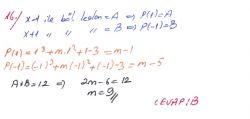 16-) x-1 ile böl. kalan = A ⇒ P(1)=A
x+1 " " " = B ⇒ P(-1)=B
P(1) = 1³ + m.1² + 1 - 3 = m - 1
P(-1) = (-1)³ + m(-1)² + (-1) - 3 = m - 5
A+B = 12 ⇒ 2m - 6 = 12
m = 9
CEVAP: B